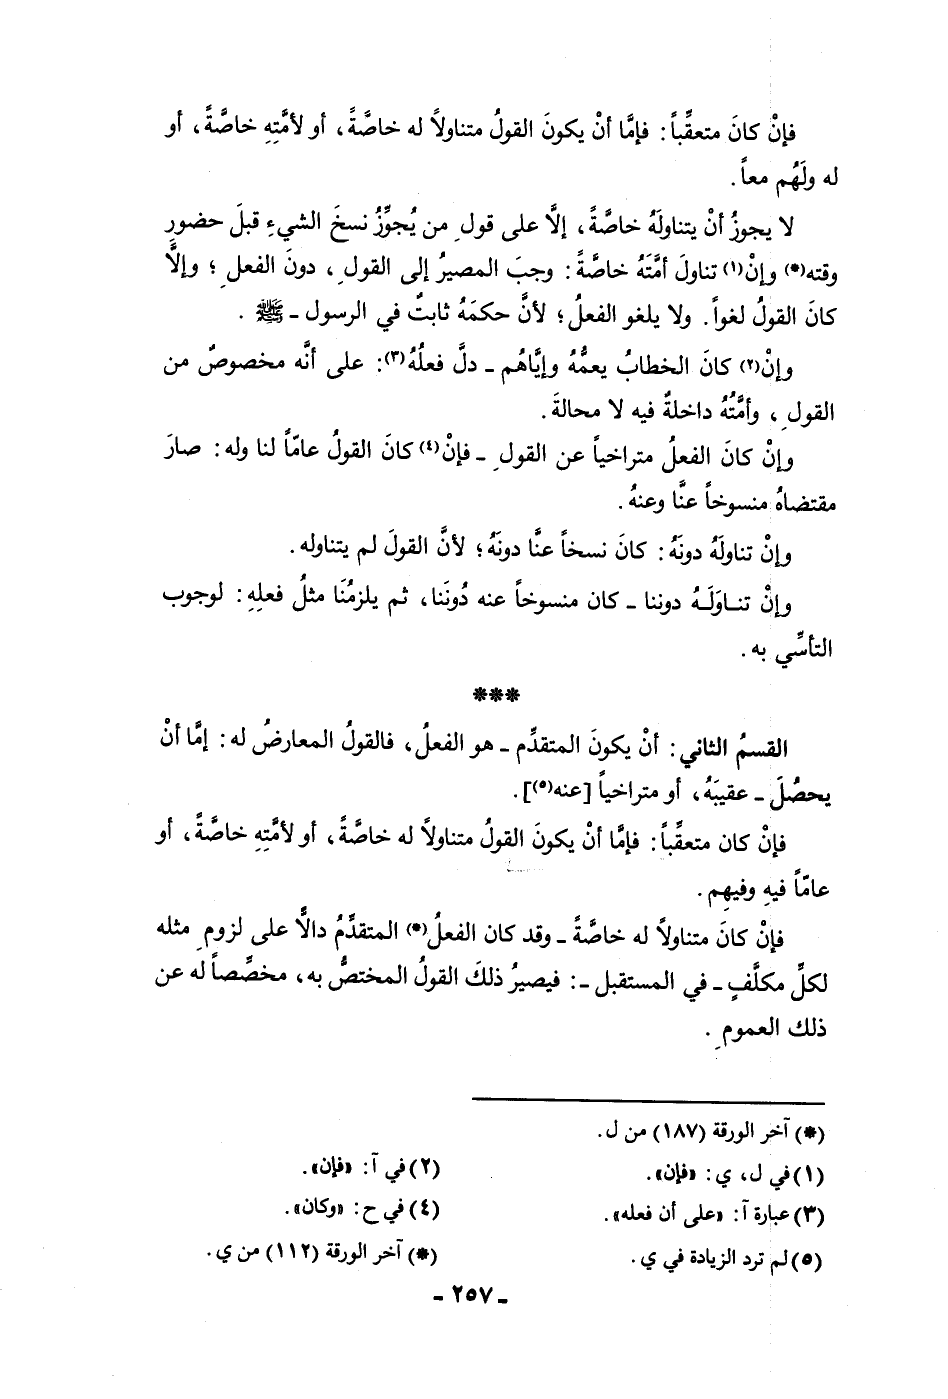 فإنْ كانَ متعقِّباً: فإمَّا أنْ يكونَ القولُ متناولاً له خاصَّةً، أو لأمَّتِهِ خاصَّةً، أو
له ولَهُم معاً.
لا يجوزُ أنْ يتناولَهُ خاصَّةً، إلَّا على قولِ من يُجوِّزُ نسخَ الشيءِ قبلَ حضورِ
وقته(*) وإنْ(١) تناولَ أمَّتَهُ خاصَّةً: وجبَ المصيرُ إلى القولِ، دونَ الفعلِ؛ وإلَّا
كانَ القولُ لغواً. ولا يلغو الفعلُ؛ لأنَّ حكمَهُ ثابتٌ في الرسول ـ ﷺ .
وإنْ(٢) كانَ الخطابُ يعمُّهُ وإيَّاهُم ـ دلَّ فعلُهُ(٣): على أنَّه مخصوصٌ من
القولِ، وأمَّتُهُ داخلةٌ فيه لا محالةَ.
وإنْ كانَ الفعلُ متراخياً عن القولِ ـ فإنْ(٤) كانَ القولُ عامّاً لنا وله: صارَ
مقتضاهُ منسوخاً عنَّا وعنهُ.
وإنْ تناولَهُ دونَهُ: كانَ نسخاً عنَّا دونَهُ؛ لأنَّ القولَ لم يتناوله.
وإنْ تناوَلَهُ دوننا ـ كان منسوخاً عنه دُونَنا، ثم يلزمُنَا مثلُ فعلِهِ: لوجوب
التأسِّي به.
***
القسمُ الثاني: أنْ يكونَ المتقدِّم ـ هو الفعلُ، فالقولُ المعارضُ له: إمَّا أنْ
يحصُلَ ـ عقيبَهُ، أو متراخياً [عنه(٥)].
فإنْ كان متعقِّباً: فإمَّا أن يكونَ القولُ متناولاً له خاصَّةً، أو لأمَّتِهِ خاصَّةً، أو
عامّاً فيهِ وفيهِم.
فإنْ كانَ متناولاً له خاصَّةً ـ وقد كان الفعلُ(*) المتقدِّمُ دالَّا على لزومِ مثله
لكلِّ مكلَّفٍ ـ في المستقبل ـ: فيصيرُ ذلكَ القولُ المختصُّ به، مخصِّصاً له عن
ذلك العمومِ.
(*) آخر الورقة (١٨٧) من ل.
(١) في ل، ي: «فإن».
(٢) في آ: «فإن».
(٣) عبارة آ: «على أن فعله».
(٤) في ح: «وكان».
(٥) لم ترد الزيادة في ي.
(*) آخر الورقة (١١٢) من ي.
ـ ٢٥٧ ـ